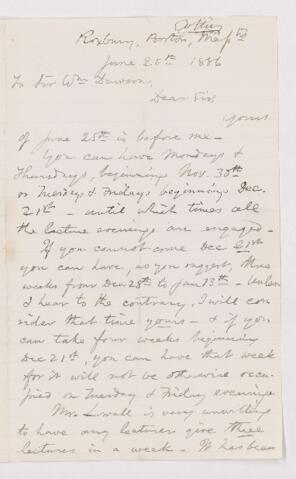 Roxbury, Boston, Mass
June 28th 1886
To Sir Wm Dawson,
Dear Sir,
Yours
of June 25th is before me –
You can have Mondays &
Thursdays, beginning Nov. 30th
or Tuesdays & Fridays beginning Dec.
21st – until which times all
the lecture evenings are engaged –
If you cannot come Dec 21st
you can have, as you suggest, three
weeks from Dec 28th to Jan 13th – Unless
I hear to the contrary, I will con-
sider that time yours – & if you
can take four weeks beginning
Dec 21st, you can have that week
for it will not be otherwise occu-
pied on Tuesday & Friday evenings
Mr. Lowell is very unwilling
to have any lecturer give three
lectures in a week – It has been